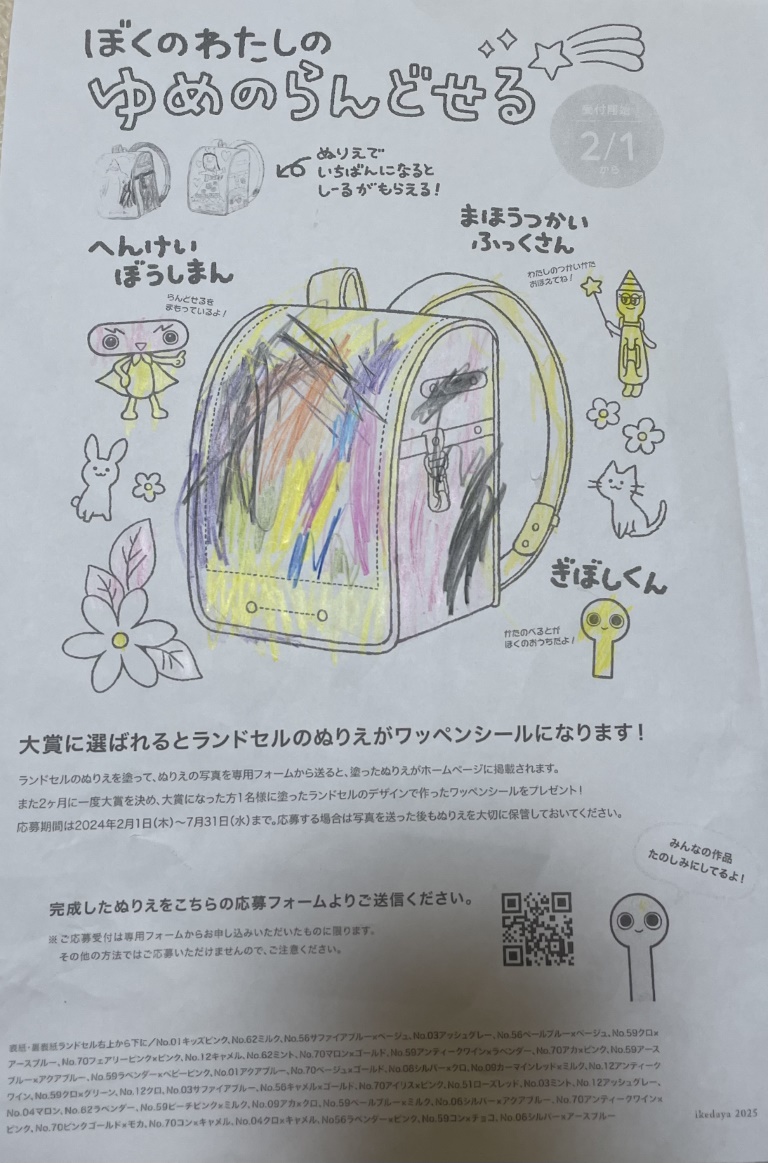 ぼくのわたしの
ゆめのらんどせる
受付開始
2/1
から
ぬりえで
いちばんになると
しーるがもらえる!
へんけい
ぼうしまん
らんどせるを
まもっているよ!
まほうつかい
ふっくさん
わたしのつかいかた
おぼえてね!
ぎぼしくん
かたのべるとが
ぼくのおうちだよ!
大賞に選ばれるとランドセルのぬりえがワッペンシールになります!
ランドセルのぬりえを塗って、ぬりえの写真を専用フォームから送ると、塗ったぬりえがホームページに掲載されます。
また2ヶ月に一度大賞を決め、大賞になった方1名様に塗ったランドセルのデザインで作ったワッペンシールをプレゼント!
応募期間は2024年2月1日(木)〜7月31日(水)まで。応募する場合は写真を送った後もぬりえを大切に保管しておいてください。
みんなの作品
たのしみにしてるよ!
完成したぬりえをこちらの応募フォームよりご送信ください。
※ご応募受付は専用フォームからお申し込みいただいたものに限ります。
その他の方法ではご応募いただけませんので、ご注意ください。
表紙・裏表紙ランドセル右上から下に/No.01キッズピンク、No.62ミルク、No.56サファイアブルー×ベージュ、No.03アッシュグレー、No.56ペールブルー×ベージュ、No.59クロ×
アースブルー、No.70フェアリーピンク×ピンク、No.12キャメル、No.62ミント、No.70マロン×ゴールド、No.59アンティークワイン×ラベンダー、No.70アカ×ピンク、No.59アース
ブルー×アクアブルー、No.59ラベンダー×ベビーピンク、No.01アクアブルー、No.70ベージュ×ゴールド、No.06シルバー×クロ、No.09カーマインレッド×ミルク、No.12アンティーク
ワイン、No.59クロ×グリーン、No.12クロ、No.03サファイアブルー、No.56キャメル×ゴールド、No.70アイリス×ピンク、No.51ローズレッド、No.03ミント、No.12アッシュグレー、
No.04マロン、No.62ラベンダー、No.59ピーチピンク×ミルク、No.09アカ×クロ、No.59ペールブルー×ミルク、No.06シルバー×アクアブルー、No.70アンティークワイン×
ピンク、No.70ピンクゴールド×モカ、No.70コン×キャメル、No.04クロ×キャメル、No56ラベンダー×ピンク、No.59コン×チョコ、No.06シルバー×アースブルー
ikedaya 2025